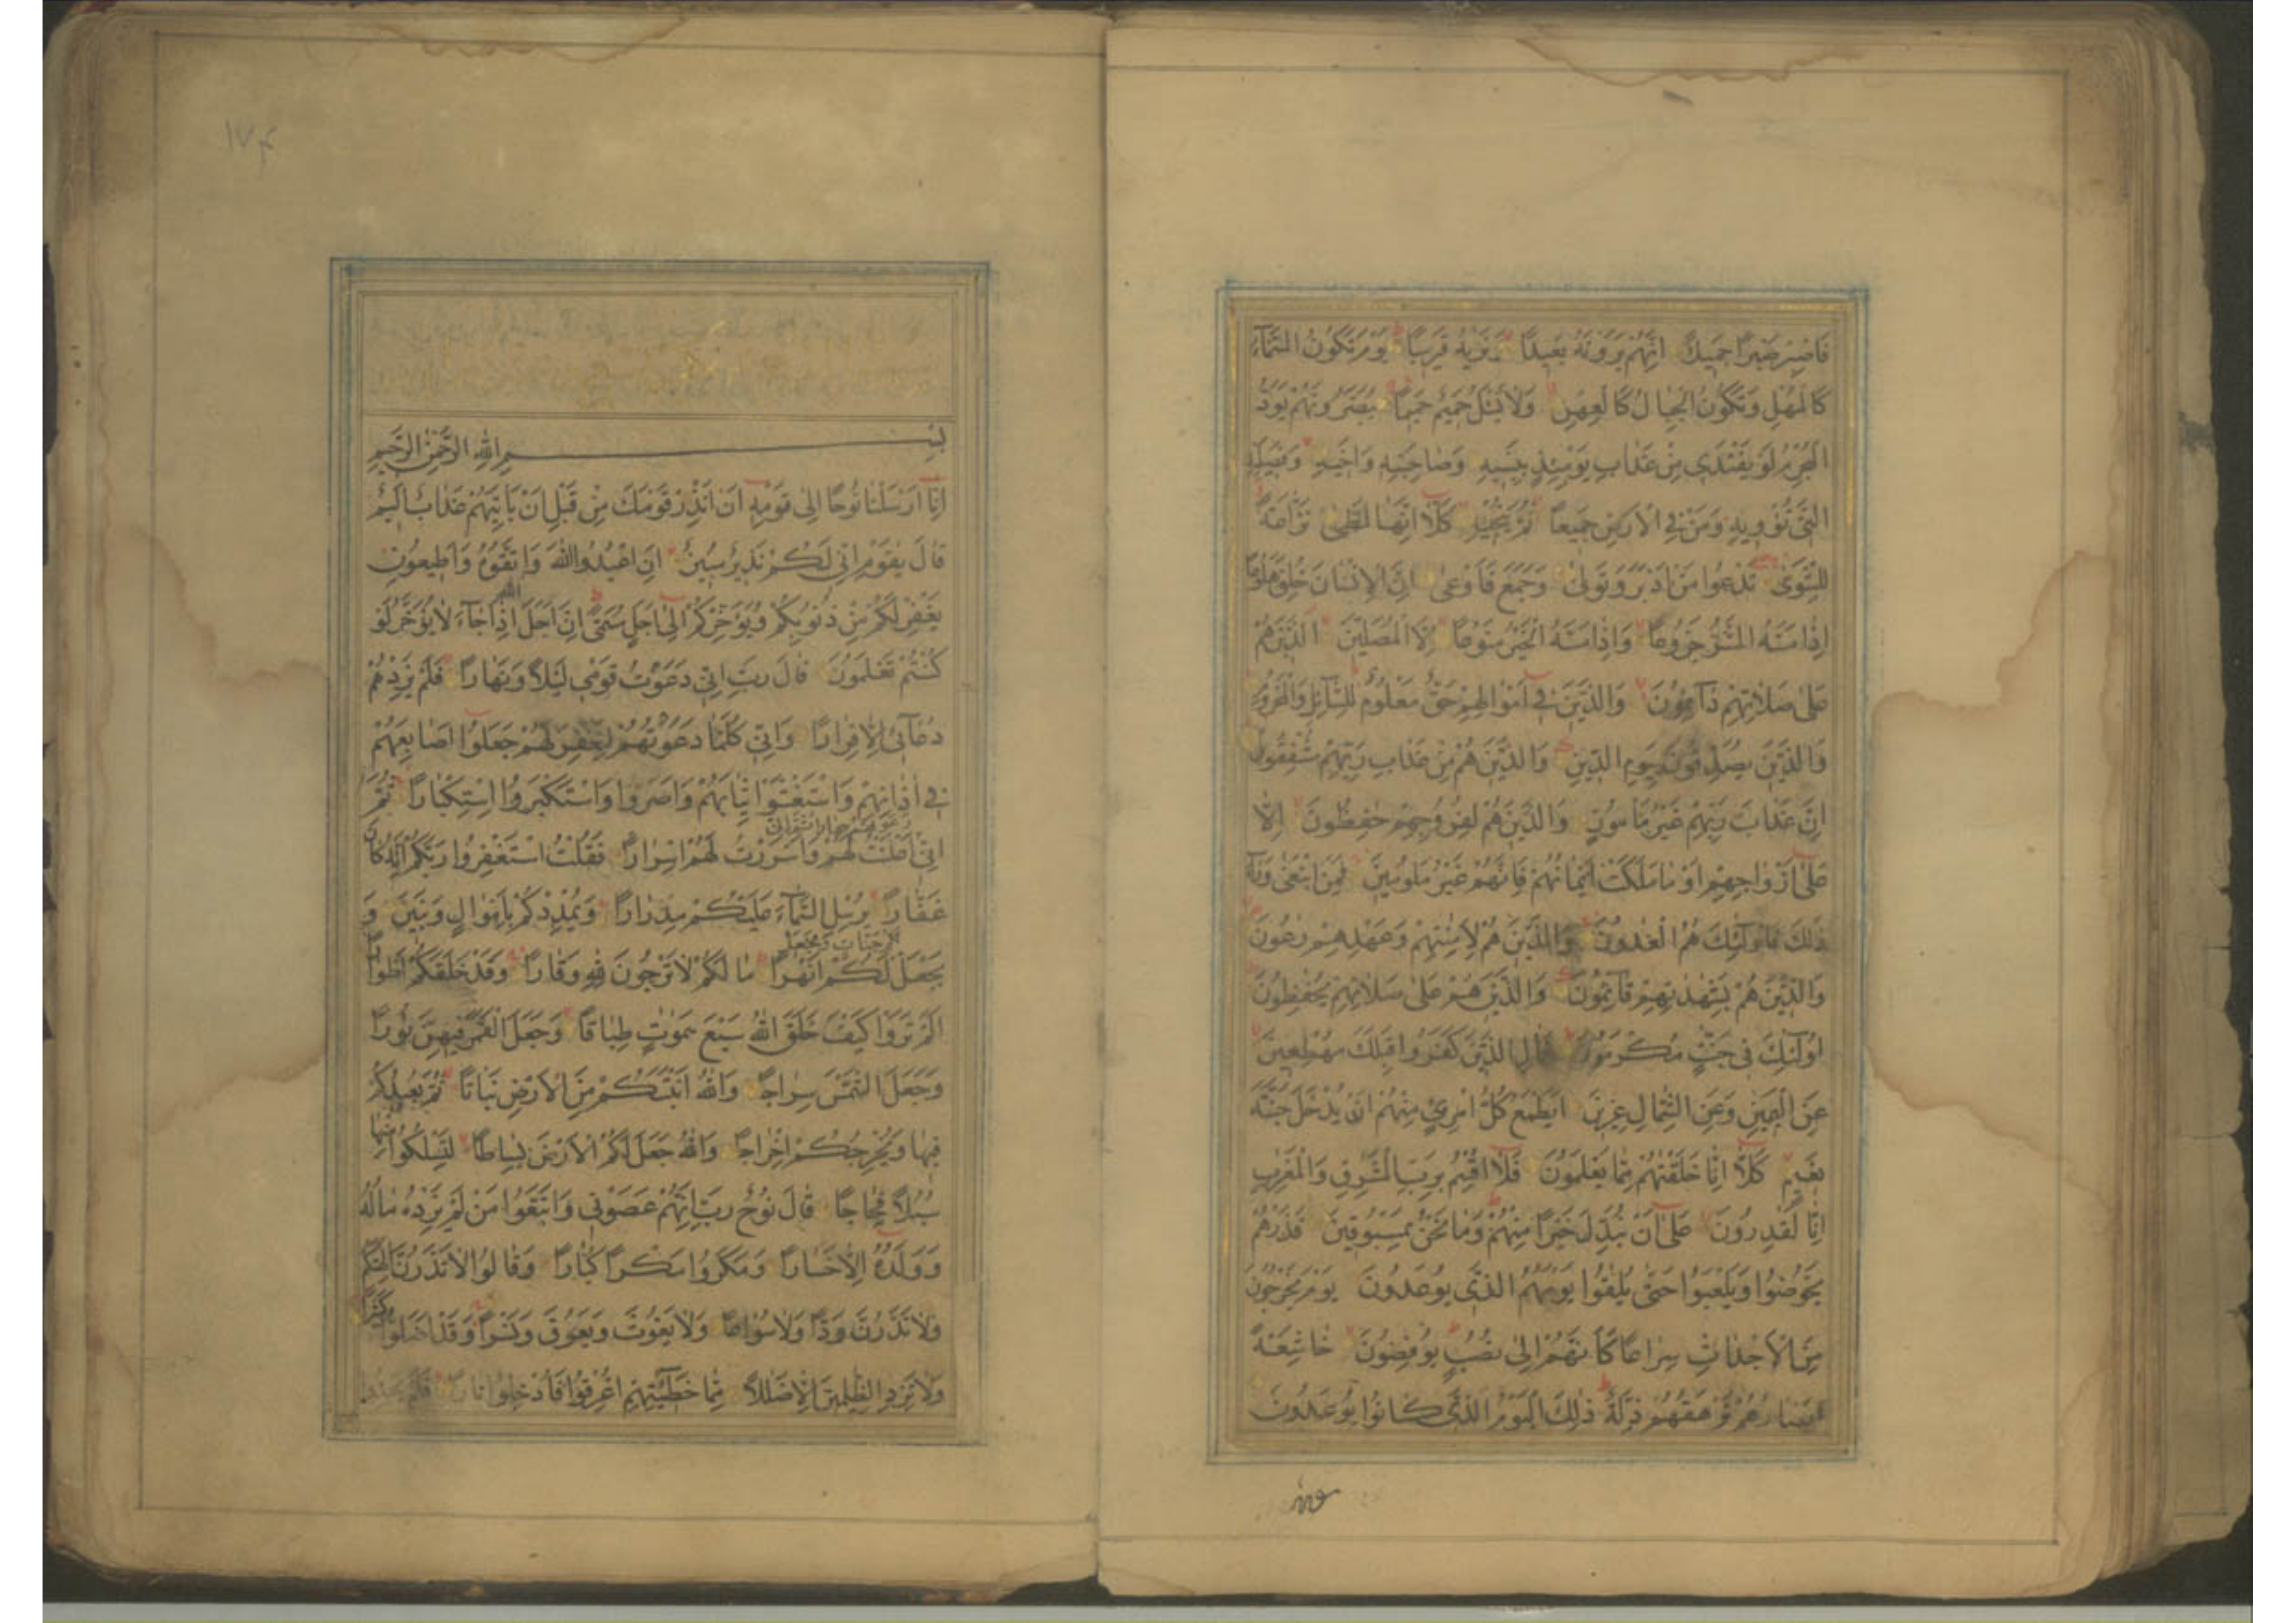 فَاصْبِرْ صَبْرًا جَمِيلًا اِنَّهُمْ يَرَوْنَهُ بَعِيدًا وَنَرٰيهُ قَرِيبًا يَوْمَ تَكُونُ السَّمَآءُ
كَالْمُهْلِ وَتَكُونُ الْجِبَالُ كَالْعِهْنِ وَلَا يَسْئَلُ حَمِيمٌ حَمِيمًا يُبَصَّرُونَهُمْ يَوَدُّ
الْمُجْرِمُ لَوْ يَفْتَدِي مِنْ عَذَابِ يَوْمِئِذٍ بِبَنِيهِ وَصَاحِبَتِهِ وَاَخِيهِ وَفَصِيلَتِهِ
الَّتِي تُؤْوِيهِ وَمَنْ فِي الْاَرْضِ جَمِيعًا ثُمَّ يُنْجِيهِ كَلَّا اِنَّهَا لَظٰى نَزَّاعَةً
لِلشَّوٰى تَدْعُوا مَنْ اَدْبَرَ وَتَوَلّٰى وَجَمَعَ فَاَوْعٰى اِنَّ الْاِنْسَانَ خُلِقَ هَلُوعًا
اِذَا مَسَّهُ الشَّرُّ جَزُوعًا وَاِذَا مَسَّهُ الْخَيْرُ مَنُوعًا اِلَّا الْمُصَلِّينَ الَّذِينَ هُمْ
عَلٰى صَلَاتِهِمْ دَآئِمُونَ وَالَّذِينَ فِي اَمْوَالِهِمْ حَقٌّ مَعْلُومٌ لِلسَّآئِلِ وَالْمَحْرُومِ
وَالَّذِينَ يُصَدِّقُونَ بِيَوْمِ الدِّينِ وَالَّذِينَ هُمْ مِنْ عَذَابِ رَبِّهِمْ مُشْفِقُونَ
اِنَّ عَذَابَ رَبِّهِمْ غَيْرُ مَأْمُونٍ وَالَّذِينَ هُمْ لِفُرُوجِهِمْ حٰفِظُونَ اِلَّا
عَلٰى اَزْوَاجِهِمْ اَوْ مَا مَلَكَتْ اَيْمَانُهُمْ فَاِنَّهُمْ غَيْرُ مَلُومِينَ فَمَنِ ابْتَغٰى وَرَآءَ
ذٰلِكَ فَاُولٰٓئِكَ هُمُ الْعٰدُونَ وَالَّذِينَ هُمْ لِاَمٰنٰتِهِمْ وَعَهْدِهِمْ رٰعُونَ
وَالَّذِينَ هُمْ بِشَهٰدٰتِهِمْ قَآئِمُونَ وَالَّذِينَ هُمْ عَلٰى صَلَاتِهِمْ يُحٰفِظُونَ
اُولٰٓئِكَ فِي جَنّٰتٍ مُكْرَمُونَ فَمَالِ الَّذِينَ كَفَرُوا قِبَلَكَ مُهْطِعِينَ
عَنِ الْيَمِينِ وَعَنِ الشِّمَالِ عِزِينَ اَيَطْمَعُ كُلُّ امْرِئٍ مِنْهُمْ اَنْ يُدْخَلَ جَنَّةَ
نَعِيمٍ كَلَّا اِنَّا خَلَقْنٰهُمْ مِمَّا يَعْلَمُونَ فَلَا اُقْسِمُ بِرَبِّ الْمَشٰرِقِ وَالْمَغٰرِبِ
اِنَّا لَقٰدِرُونَ عَلٰى اَنْ نُبَدِّلَ خَيْرًا مِنْهُمْ وَمَا نَحْنُ بِمَسْبُوقِينَ فَذَرْهُمْ
يَخُوضُوا وَيَلْعَبُوا حَتّٰى يُلٰقُوا يَوْمَهُمُ الَّذِي يُوعَدُونَ يَوْمَ يَخْرُجُونَ
مِنَ الْاَجْدَاثِ سِرَاعًا كَاَنَّهُمْ اِلٰى نُصُبٍ يُوفِضُونَ خَاشِعَةً
اَبْصَارُهُمْ تَرْهَقُهُمْ ذِلَّةٌ ذٰلِكَ الْيَوْمُ الَّذِي كَانُوا يُوعَدُونَ
١٧٤
بِسْمِ اللهِ الرَّحْمٰنِ الرَّحِيمِ
اِنَّا اَرْسَلْنَا نُوحًا اِلٰى قَوْمِهِ اَنْ اَنْذِرْ قَوْمَكَ مِنْ قَبْلِ اَنْ يَأْتِيَهُمْ عَذَابٌ اَلِيمٌ
قَالَ يٰقَوْمِ اِنِّي لَكُمْ نَذِيرٌ مُبِينٌ اَنِ اعْبُدُوا اللهَ وَاتَّقُوهُ وَاَطِيعُونِ
يَغْفِرْ لَكُمْ مِنْ ذُنُوبِكُمْ وَيُؤَخِّرْكُمْ اِلٰى اَجَلٍ مُسَمًّى اِنَّ اَجَلَ اللهِ اِذَا جَآءَ لَا يُؤَخَّرُ لَوْ
كُنْتُمْ تَعْلَمُونَ قَالَ رَبِّ اِنِّي دَعَوْتُ قَوْمِي لَيْلًا وَنَهَارًا فَلَمْ يَزِدْهُمْ
دُعَآئِي اِلَّا فِرَارًا وَاِنِّي كُلَّمَا دَعَوْتُهُمْ لِتَغْفِرَ لَهُمْ جَعَلُوا اَصَابِعَهُمْ
فِي اٰذَانِهِمْ وَاسْتَغْشَوْا ثِيَابَهُمْ وَاَصَرُّوا وَاسْتَكْبَرُوا اسْتِكْبَارًا ثُمَّ
اِنِّي دَعَوْتُهُمْ جِهَارًا ثُمَّ اِنِّي اَعْلَنْتُ لَهُمْ وَاَسْرَرْتُ لَهُمْ اِسْرَارًا فَقُلْتُ اسْتَغْفِرُوا رَبَّكُمْ اِنَّهُ كَانَ
غَفَّارًا يُرْسِلِ السَّمَآءَ عَلَيْكُمْ مِدْرَارًا وَيُمْدِدْكُمْ بِاَمْوَالٍ وَبَنِينَ وَ
يَجْعَلْ لَكُمْ جَنّٰاتٍ وَيَجْعَلْ لَكُمْ اَنْهٰرًا مَا لَكُمْ لَا تَرْجُونَ لِلّٰهِ وَقَارًا وَقَدْ خَلَقَكُمْ اَطْوَارًا
اَلَمْ تَرَوْا كَيْفَ خَلَقَ اللهُ سَبْعَ سَمٰوٰتٍ طِبَاقًا وَجَعَلَ الْقَمَرَ فِيهِنَّ نُورًا
وَجَعَلَ الشَّمْسَ سِرَاجًا وَاللهُ اَنْبَتَكُمْ مِنَ الْاَرْضِ نَبَاتًا ثُمَّ يُعِيدُكُمْ
فِيهَا وَيُخْرِجُكُمْ اِخْرَاجًا وَاللهُ جَعَلَ لَكُمُ الْاَرْضَ بِسَاطًا لِتَسْلُكُوا مِنْهَا
سُبُلًا فِجَاجًا قَالَ نُوحٌ رَبِّ اِنَّهُمْ عَصَوْنِي وَاتَّبَعُوا مَنْ لَمْ يَزِدْهُ مَالُهُ
وَوَلَدُهُ اِلَّا خَسَارًا وَمَكَرُوا مَكْرًا كُبَّارًا وَقَالُوا لَا تَذَرُنَّ اٰلِهَتَكُمْ
وَلَا تَذَرُنَّ وَدًّا وَلَا سُوَاعًا وَلَا يَغُوثَ وَيَعُوقَ وَنَسْرًا وَقَدْ اَضَلُّوا كَثِيرًا
وَلَا تَزِدِ الظّٰلِمِينَ اِلَّا ضَلٰلًا مِمَّا خَطِيٓئٰتِهِمْ اُغْرِقُوا فَاُدْخِلُوا نَارًا فَلَمْ يَجِدُوا